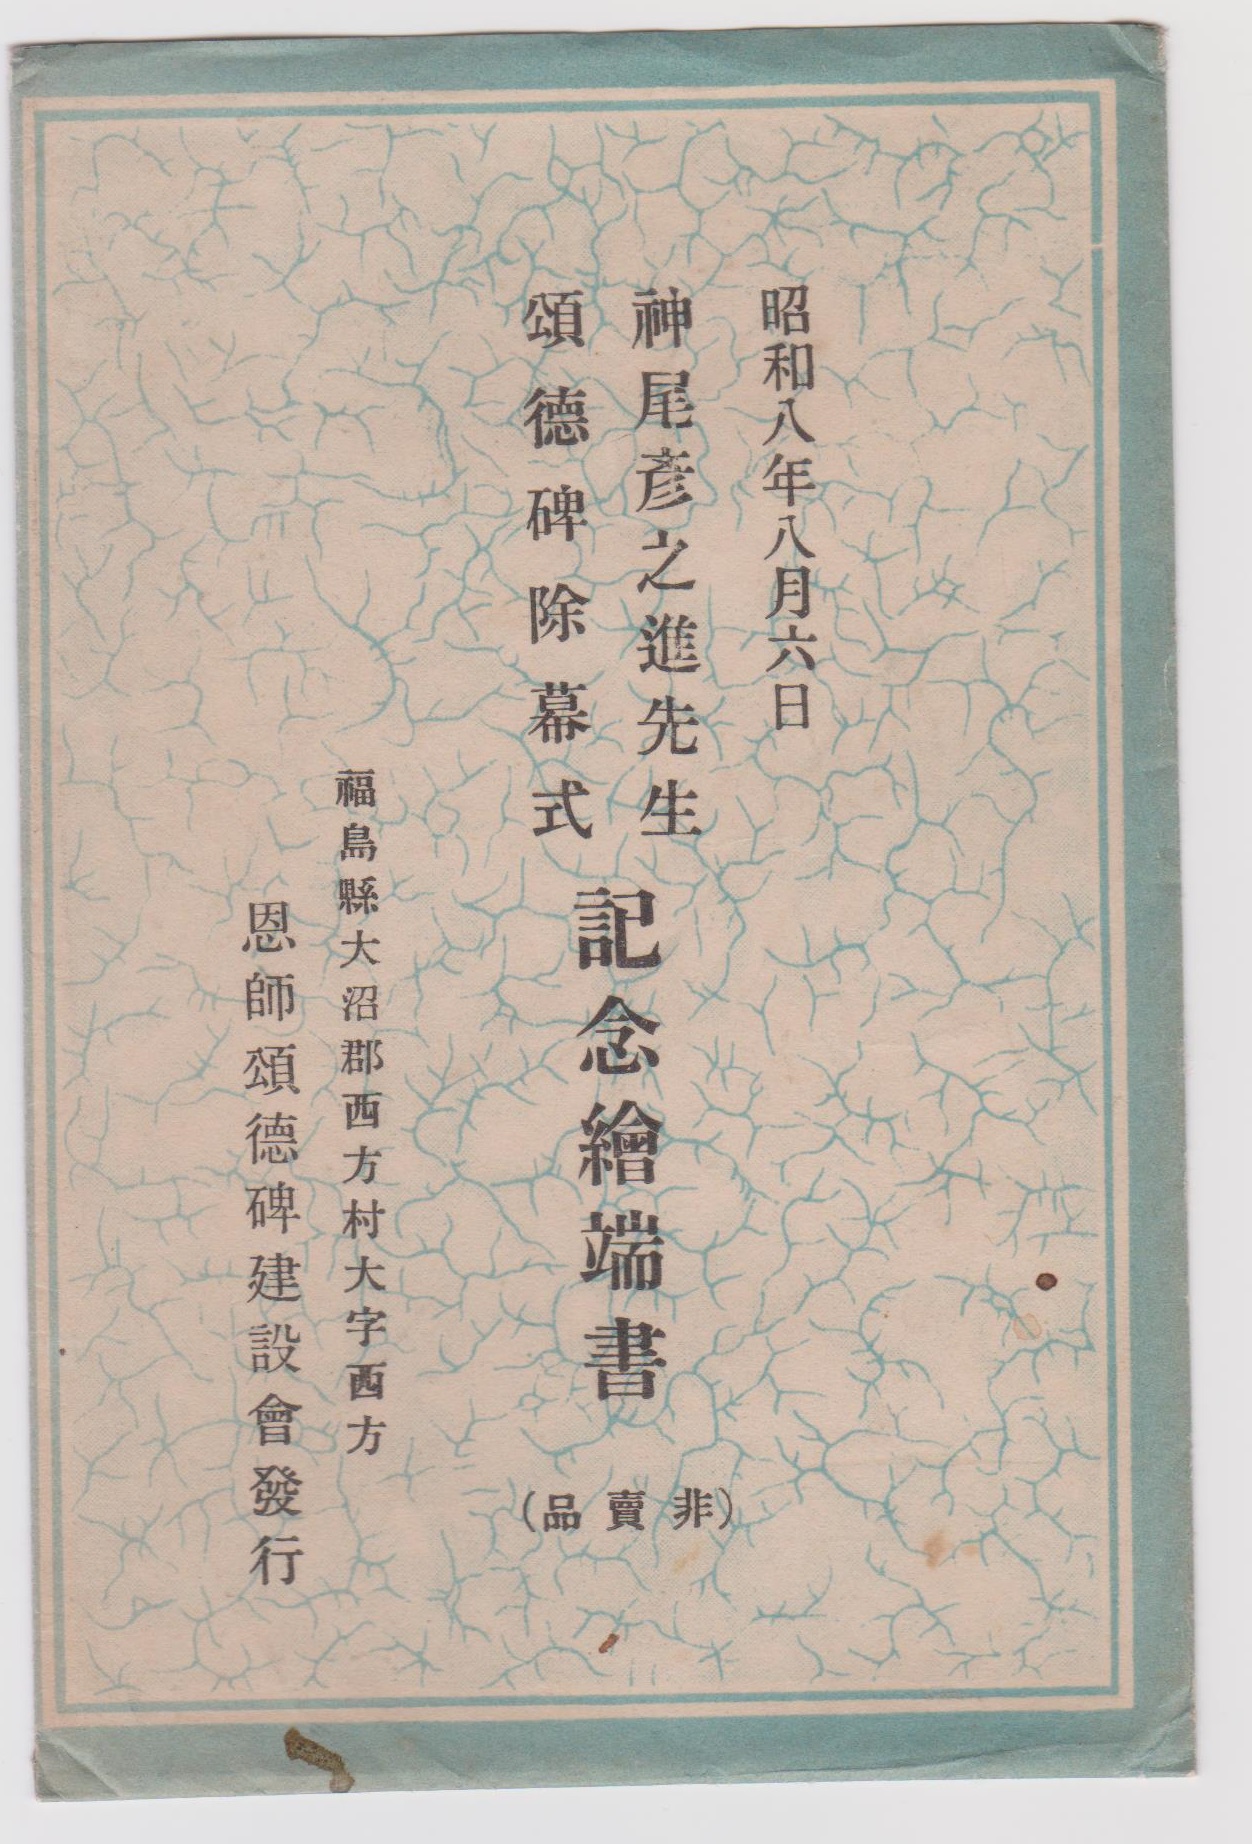 昭和八年八月六日
神尾彥之進先生
頌德碑除幕式
記念繪端書
(非賣品)
福島縣大沼郡西方村大字西方
恩師頌德碑建設會發行